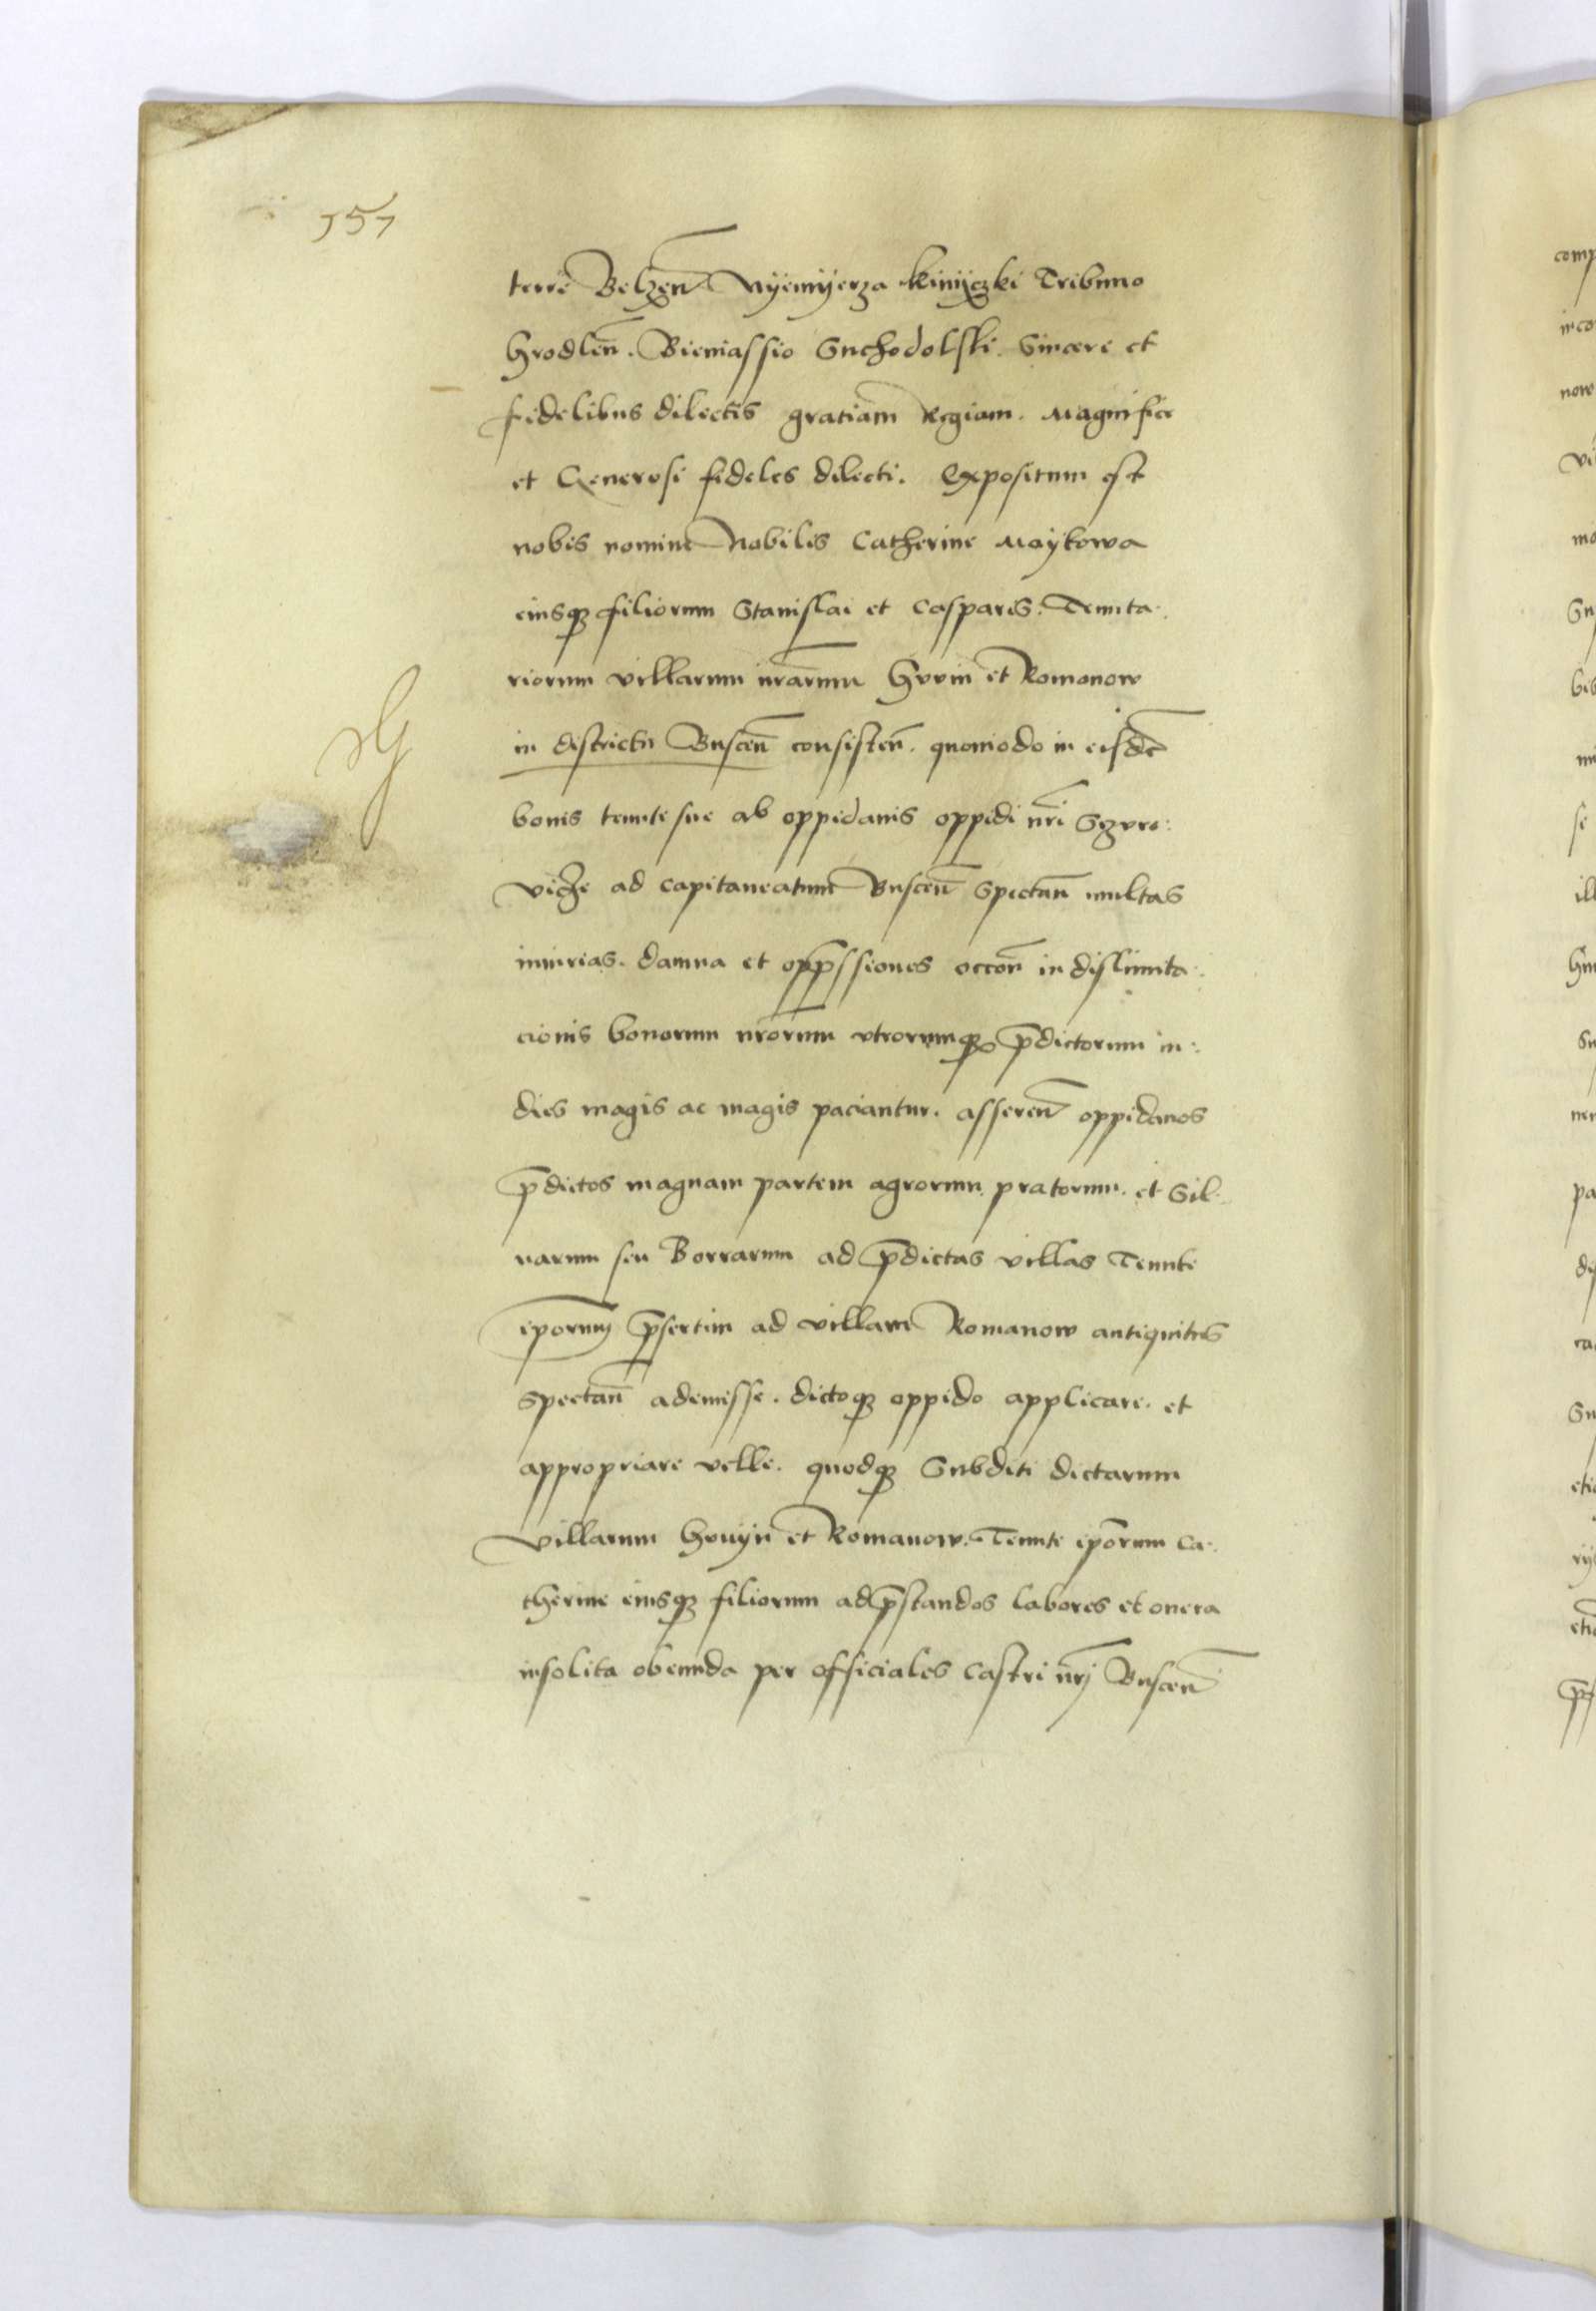 157
terre Belzen̄ Nyemyerza kinyczki Tribuno
hrodlen̄. Bieniassio Suchodolski. Sincere et
fidelibus dilectis gratiam Regiam. Magnifice
et Generosi fideles dilecti. Expositum est
nobis nomine Nobilis Catherine Maykowa
eiusqꝫ filiorum Stanislai et Casparis. Tenuta-
riorum villarum nr̄arum hvvin et Romanow
in districtu Buscen̄ consisten̄. quomodo in eisdē
bonis tenute sue ab oppidanis oppidi nr̄i Szvro-
vicze ad capitaneatum Buscen̄ spectan̄ multas
iniurias. damna et opp̄ssiones occon̄ in dislimita-
cionis bonorum nr̄orum vtrorumqꝫ p̄dictorum in-
dies magis ac magis paciantur. asseren̄ oppidanos
p̄dictos magnam partem agrorum pratorum. et Sil-
uarum seu Borrarum ad p̄dictas villas Tenute
ip̄orum p̄sertim ad villam Romanow antiquitus
spectan̄ ademisse. dictoqꝫ oppido applicare. et
appropriare velle. quodqꝫ Subditi dictarum
villarum hovyn et Romanow. Tenute ip̄orum Ca-
therine eiusqꝫ filiorum ad p̄standos labores et onera
insolita obeunda per officiales Castri nr̄j Buscen̄
comp
inco
now